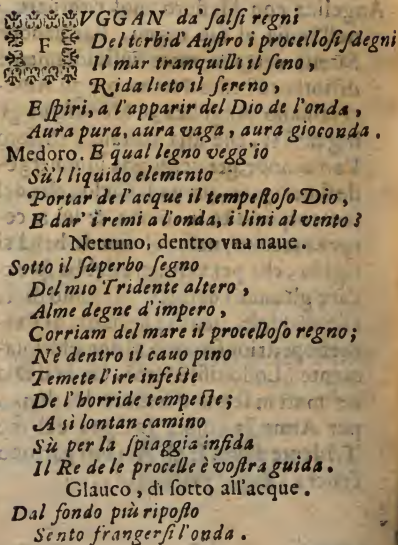 FVGGAN da' falsi regni
Del torbid' Austro i procellosi sdegni
Il mar tranquilli il seno,
Rida lieto il sereno,
E spiri, a l'apparir del Dio de l'onda,
Aura pura, aura vaga, aura gioconda.
Medoro. E qual legno vegg'io
Sù'l liquido elemento
Portar de l'acque il tempestoso Dio,
E dar' i remi a l'onda, i lini al vento?
Nettuno, dentro vna naue.
Sotto il superbo segno
Del mio Tridente altero,
Alme degne d'impero,
Corriam del mare il procelloso regno;
Nè dentro il cauo pino
Temete l'ire infeste
De l'horride tempeste;
A sì lontan camino
Sù per la spiaggia infida
Il Re de le procelle è vostra guida.
Glauco, di sotto all'acque.
Dal fondo più riposto
Sento frangersi l'onda.